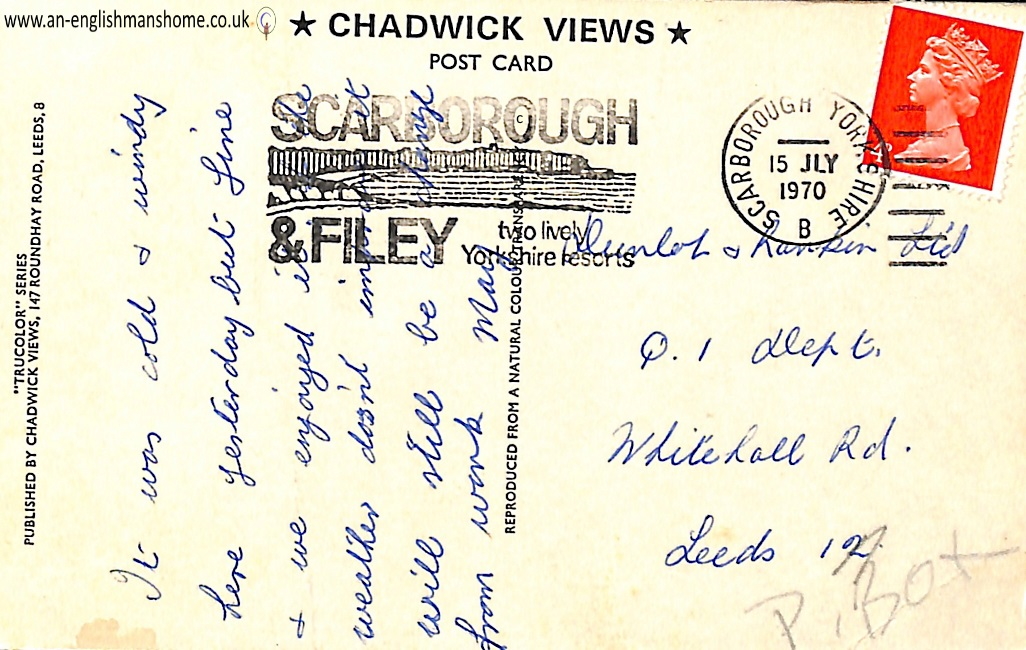 www.an-englishmanshome.co.uk
★ CHADWICK VIEWS ★
POST CARD
"TRUCOLOR" SERIES
PUBLISHED BY CHADWICK VIEWS, 147 ROUNDHAY ROAD, LEEDS, 8
SCARBOROUGH
& FILEY two lively
Yorkshire resorts
SCARBOROUGH YORKSHIRE
15 JLY
1970
B
It was cold & windy
here yesterday but fine
& we enjoyed it. the
weather dosnt it
will still be a change
from work Mary
REPRODUCED FROM A NATURAL COLOUR TRANSPARENCY
Dunlop & Rankin Ltd
Q. 1 Dept.
Whitehall Rd.
Leeds 12.
P. Box